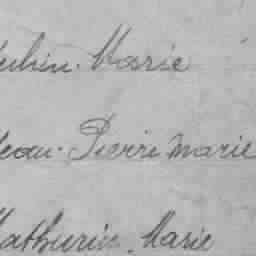 Aubin. Marie
Jean. Pierre Marie
Mathurin. Marie